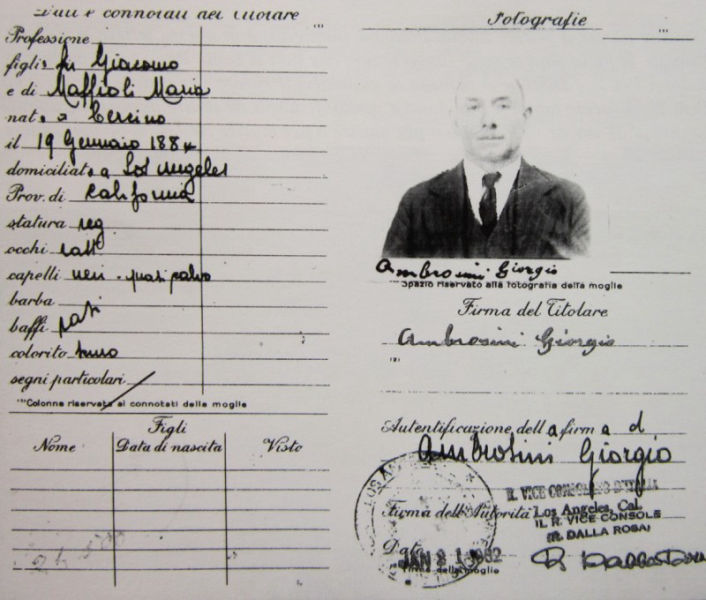 Dati e connotati del titolare
Professione
figlio fu Giacomo
e di Maffioli Maria
nato a Cercino
il 19 Gennaio 188
domiciliato a Los Angeles
Prov. di California
statura reg
occhi cast
capelli neri - quasi calvo
barba
baffi rasi
colorito bruno
segni particolari
Colonna riservata ai connotati della moglie
Figli
Nome Data di nascita Visto
Fotografie
Ambrosini Giorgio
Spazio riservato alla fotografia della moglie
Firma del Titolare
Ambrosini Giorgio
Autentificazione della firma d
Ambrosini Giorgio
R. VICE CONSOLATO D'ITALIA
Firma dell'Autorità Los Angeles, Cal.
IL R. VICE CONSOLE
(R. DALLA ROSA)
Data JAN 21 1932
Firma della moglie
R Dalla Rosa